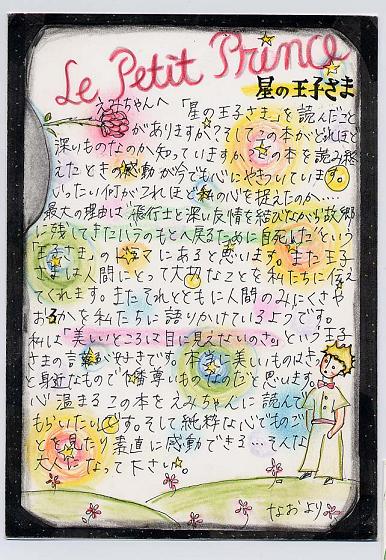 Le Petit Prince
星の王子さま
えみちゃんへ 「星の王子さま」を読んだこと
がありますか?そしてこの本がどれほど
深いものなのか知っていますか?この本を読み終
えたときの感動が今でも心にやきついています。
いったい何がこれほど私の心を捉えたのか…
最大の理由は“飛行士と深い友情を結びながら故郷
に残してきたバラのもとへ戻るために自死した”という
「王子さま」のドラマにあると思います。また王子
さまは人間にとって大切なことを私たちに伝え
てくれます。またそれとともに人間のみにくさや
おろかを私たちに語りかけているようです。
私は「美しいところは目に見えないのさ。」という王子
さまの言葉が好きです。本当に美しいものはきっ
と身近なもので1番尊いものなのだと思います。
心温まるこの本をえみちゃんに読んで
もらいたいです。そして純粋な心でものご
とを見たり素直に感動できる…そんな
大人になって下さい。
なおより